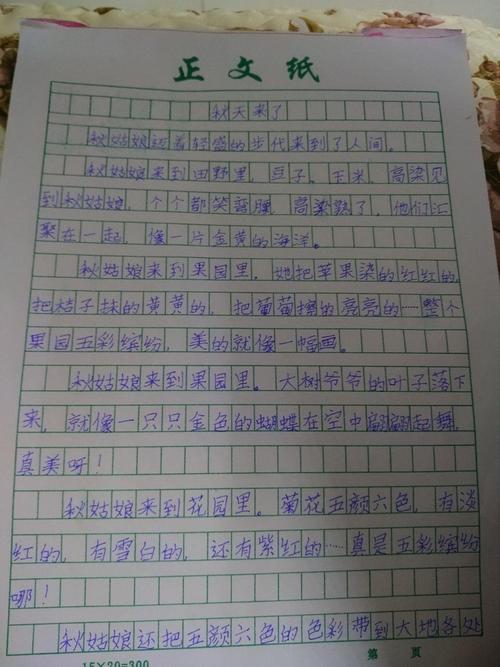 正文纸
秋天来了
秋姑娘迈着轻盈的步代来到了人间。
秋姑娘来到田野里，豆子、玉米、高梁见
到秋姑娘，个个都笑弯腰，高梁熟了，他们汇
聚在一起，像一片金黄的海洋。
秋姑娘来到果园里。她把苹果染的红红的，
把桔子抹的黄黄的，把葡萄擦的亮亮的……整个
果园五彩缤纷，美的就像一幅画。
秋姑娘来到果园里。大树爷爷的叶子落下
来，就像一只只金色的蝴蝶在空中翩翩起舞，
真美呀！
秋姑娘来到花园里。菊花五颜六色，有淡
红的，有雪白的，还有紫红的……真是五彩缤纷
哪！
秋姑娘还把五颜六色的色彩带到大地各处
15×20=300 第 页